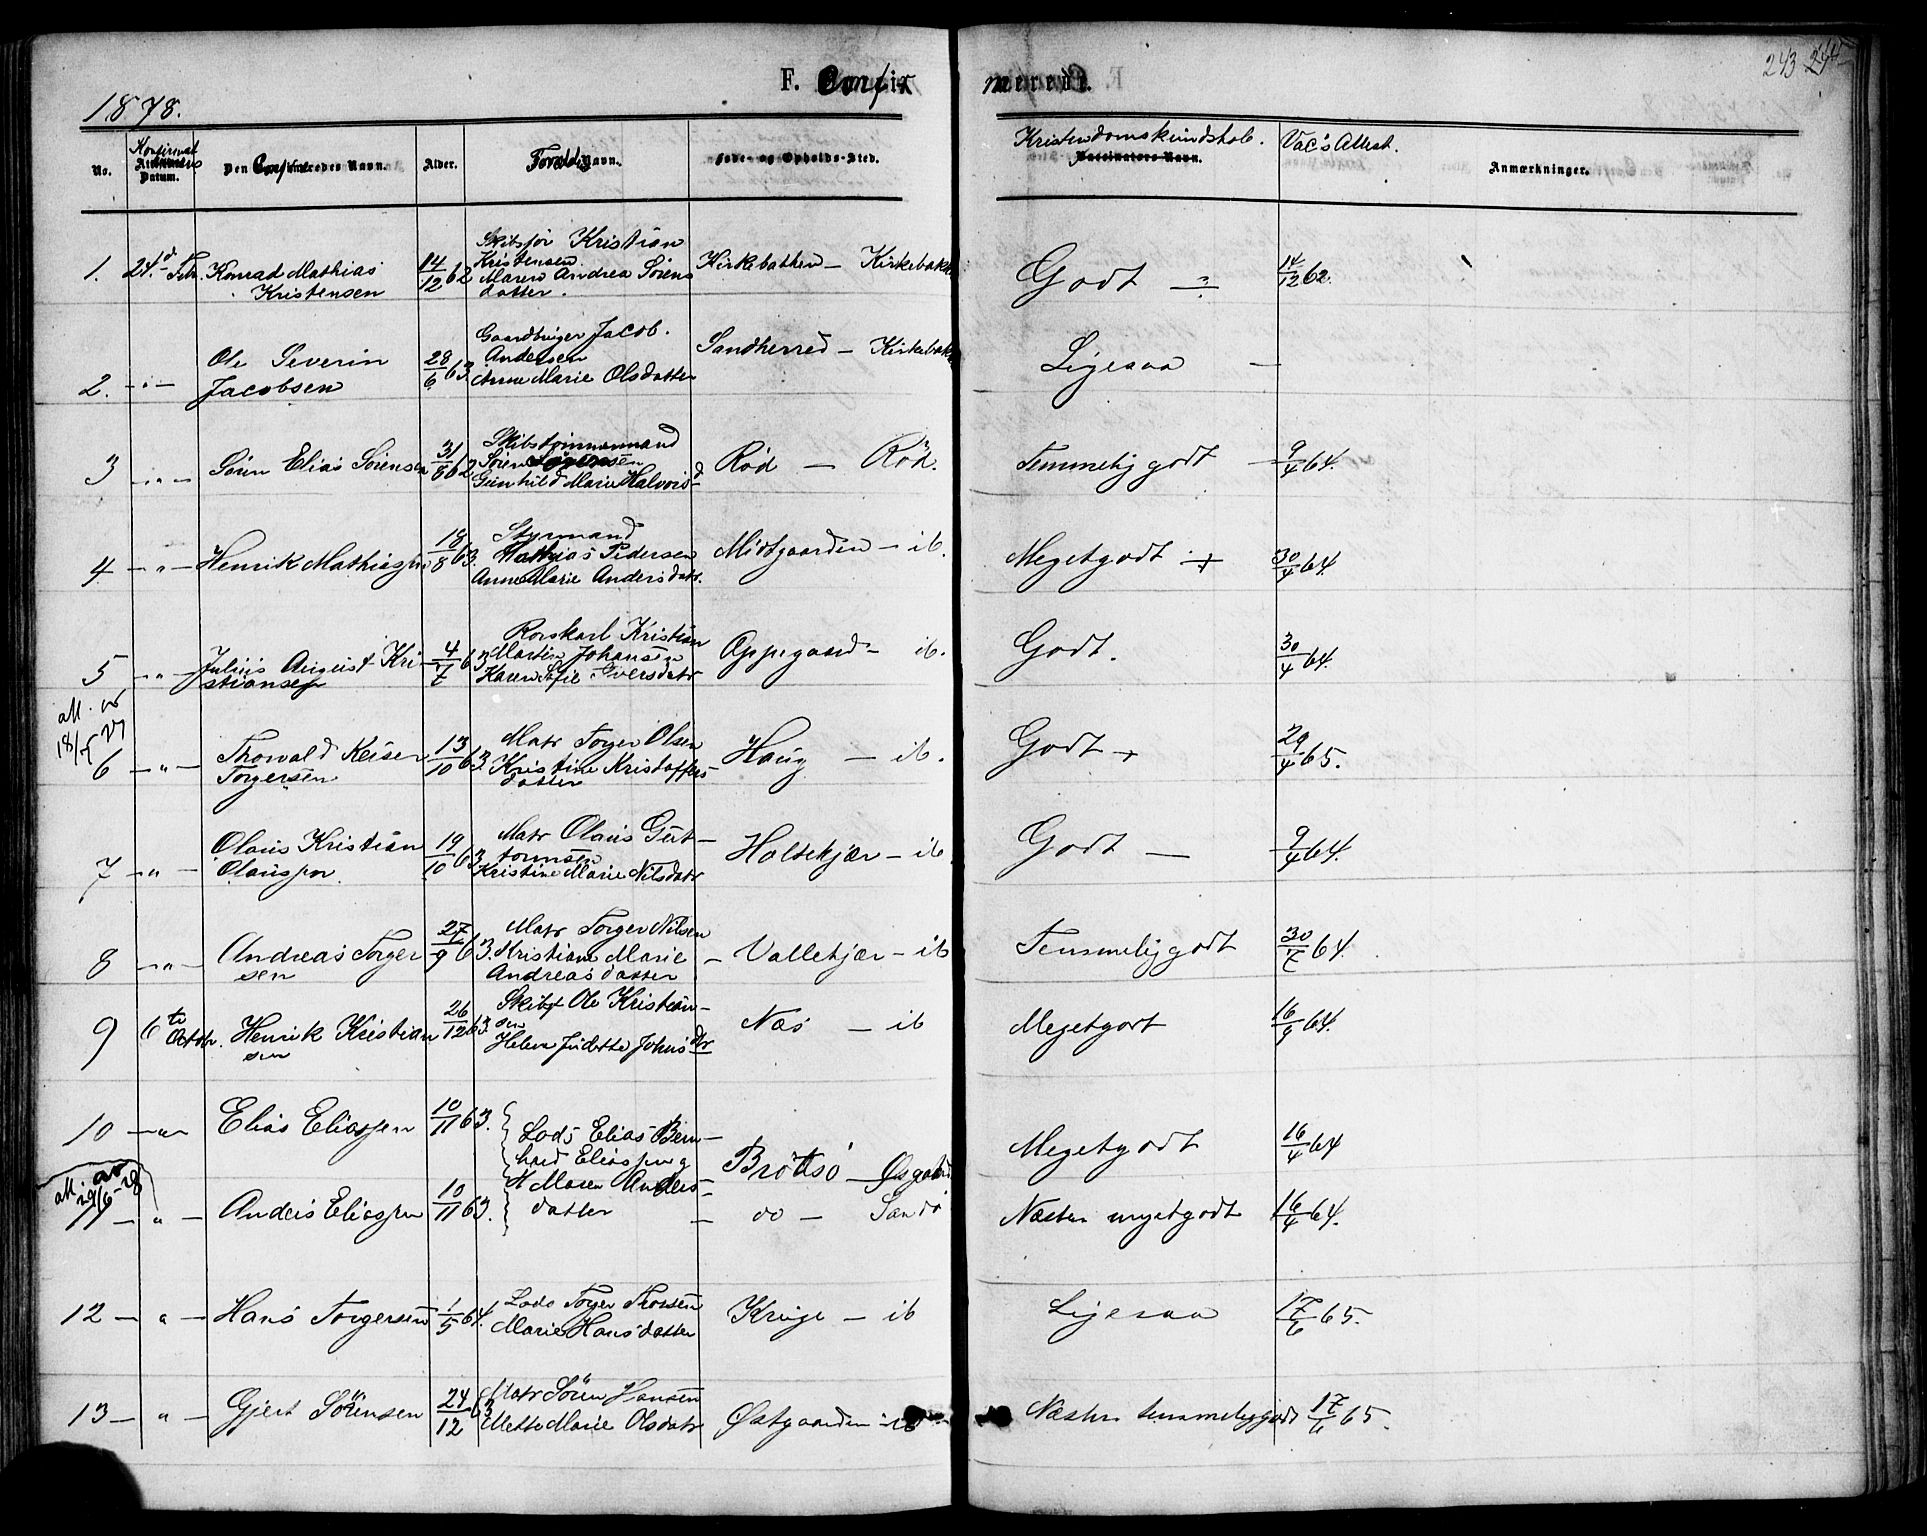 243 244
1878.
F. Confir merede.
No. Konfirmat Datum. Den Confirmeredes Navn. Alder. Foræld Navn. Føde- og Opholds-Sted. Kristendomskundskab. Vac's Attest. Anmærkninger.
1. 24de Febr. Konrad Mathias Kristensen 14/12 62 Skibsfør Kristian Kristensen Maren Andrea Sørensdatter. Kirkebakken – Kirkebakk Godt 14/12 62.
2. – " – Ole Severin Jacobsen 28/6 63. Gaardbruger Jacob Andersen Anne Marie Olsdatter Sandherred – Kirkebakk Ligesaa –
3 – " – Sören Elias Sörensen 31/8 62 Skibstömmermand Sören Sörensen Gunhild Marie Halvorsd Röd – Röd. Temmelig godt 9/4 64.
4 – " – Henrik Mathiassen 18/8 63. Styrmand Mathias Pedersen Anne Marie Andersdatr. Midtgaarden – ib. Megetgodt + 30/4 64.
5 – " – Julius August Kristiansen 4/7 63 Rorskarl Kristian Martin Johansen Karen Sofie Iversdatr Oppegaard – ib. Godt. 30/4 64.
att. 18/5 27
6 – " – Thorvald Keiser Torgersen 13/10 63. Matr Torger Olsen Kristine Kristoffersdatter Haug – ib. Godt + 29/4 65.
7 – " – Olaus Kristian Olaussen 19/10 63. Matr Olaus Guttormsen Kristine Marie Nilsdatr Holtekjær – ib Godt – 9/4 64.
8 – " – Andreas Torgersen 27/9 63. Matr Torger Nilsen Kristiane Marie Andreasdatter – Vallekjær – ib Temmelig godt 30/4 64.
9 6te Octobr. Henrik Kristiansen 26/12 63 Skibsf Ole Kristiansen Helene Judette Johnsdtr Næs – ib Megetgodt 16/9 64.
10 – " – Elias Eliassen 10/11 63. Lods Elias Bernhard Eliassen og H Maren Andersdatter Bröttsö – Øsgaard Megetgodt 16/4 64
att. 29/6-28
11 – " – Anders Eliassen 10/11 63. – do – Sandö Næsten megetgodt 16/4 64.
12 – " – Hans Torgersen 1/5 64. Lods Torger Thorsen Marie Hansdatter Kruge – ib Ligesaa 17/6 65.
13 – " – Gjert Sörensen 24/12 63 Matr Sören Hansen Mette Marie Olsdatr Østgaarden – ib – Næsten temmeliggodt 17/6 65.